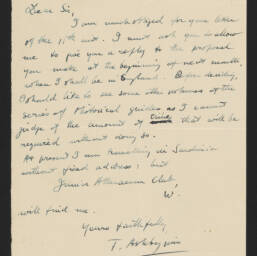 Dear Sir,
I am much obliged for your letter
of the 11th inst. I must ask you to allow
me to give you a reply to the proposal
you make at the beginning of next month,
when I shall be in England. Before deciding
I should like to see some other volumes of the
series of Historical guides as I cannot
judge of the amount of time that will be
required without doing so.
At present I am travelling in Sardinia
without fixed address: but
Junior Athenaeum Club,
W.
will find me.
Yours faithfully,
T. Ashby